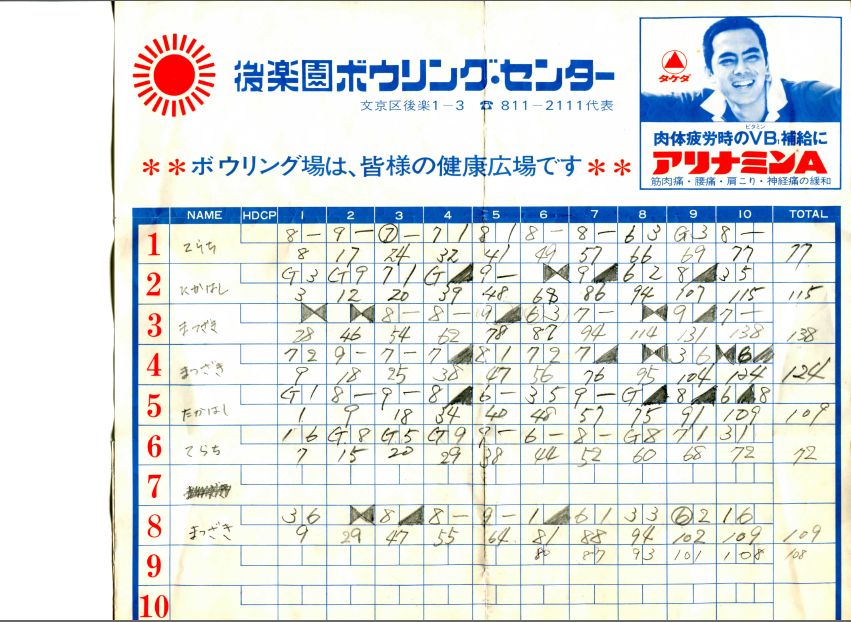 後楽園ボウリング・センター
文京区後楽1-3 ☎ 811-2111代表
**ボウリング場は、皆様の健康広場です**
タケダ
ビタミン
肉体疲労時のVB₁補給に
アリナミンA
筋肉痛・腰痛・肩こり・神経痛の緩和
NAME HDCP 1 2 3 4 5 6 7 8 9 10 TOTAL
1 てらち 8 - 9 - ⑦ - 7 1 8 1 8 - 8 - 6 3 G 3 8 -
8 17 24 32 41 49 57 66 69 77 77
2 たかはし G 3 G 9 7 1 G ◢ 9 - ⧓ 9 ◢ 6 2 8 ◢ 3 5
3 12 20 39 48 68 86 94 107 115 115
3 まつざき ⧓ ⧓ 8 - 8 - 9 ◢ 6 3 7 - ⧓ 9 ◢ 7 -
28 46 54 62 78 87 94 114 131 138 138
4 まつざき 7 2 9 - 7 - 7 ◢ 8 1 7 2 7 ◢ ⧓ 3 6 ⧓ 6 ◢
9 18 25 38 47 56 76 95 104 124 124
5 たかはし G 1 8 - 9 - 8 ◢ 6 - 3 5 9 - G ◢ 8 ◢ 6 ◢ 8
1 9 18 34 40 48 57 75 91 109 109
6 てらち 1 6 G 8 G 5 G 9 9 - 6 - 8 - G 8 7 1 3 1
7 15 20 29 38 44 52 60 68 72 72
7
8 まつざき 3 6 ⧓ 8 ◢ 8 - 9 - 1 ◢ 6 1 3 3 ⑥ 2 1 6
9 29 47 55 64 81 88 94 102 109 109
9 80 87 93 101 108 108
10